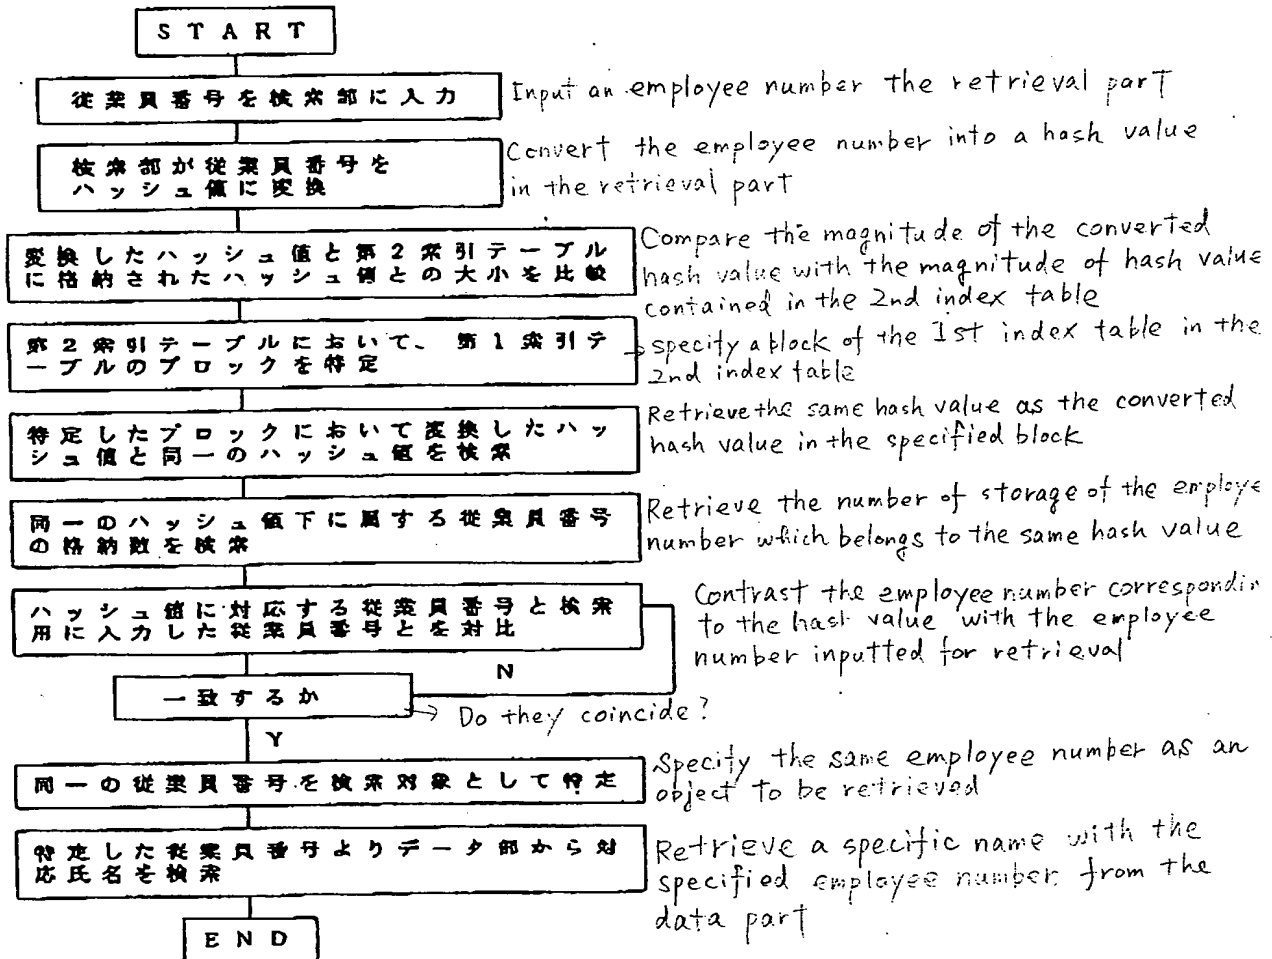 START
従業員番号を検索部に入力
Input an employee number the retrieval part
検索部が従業員番号を
ハッシュ値に変換
Convert the employee number into a hash value
in the retrieval part
変換したハッシュ値と第2索引テーブル
に格納されたハッシュ値との大小を比較
Compare the magnitude of the converted
hash value with the magnitude of hash value
contained in the 2nd index table
第2索引テーブルにおいて、第1索引テ
ーブルのブロックを特定
specify a block of the 1st index table in the
2nd index table
特定したブロックにおいて変換したハッ
シュ値と同一のハッシュ値を検索
Retrieve the same hash value as the converted
hash value in the specified block
同一のハッシュ値下に属する従業員番号
の格納数を検索
Retrieve the number of storage of the employe
number which belongs to the same hash value
ハッシュ値に対応する従業員番号と検索
用に入力した従業員番号とを対比
Contrast the employee number correspondin
to the hash value with the employee
number inputted for retrieval
N
一致するか
Do they coincide?
Y
同一の従業員番号を検索対象として特定
Specify the same employee number as an
object to be retrieved
特定した従業員番号よりデータ部から対
応氏名を検索
Retrieve a specific name with the
specified employee number from the
data part
END